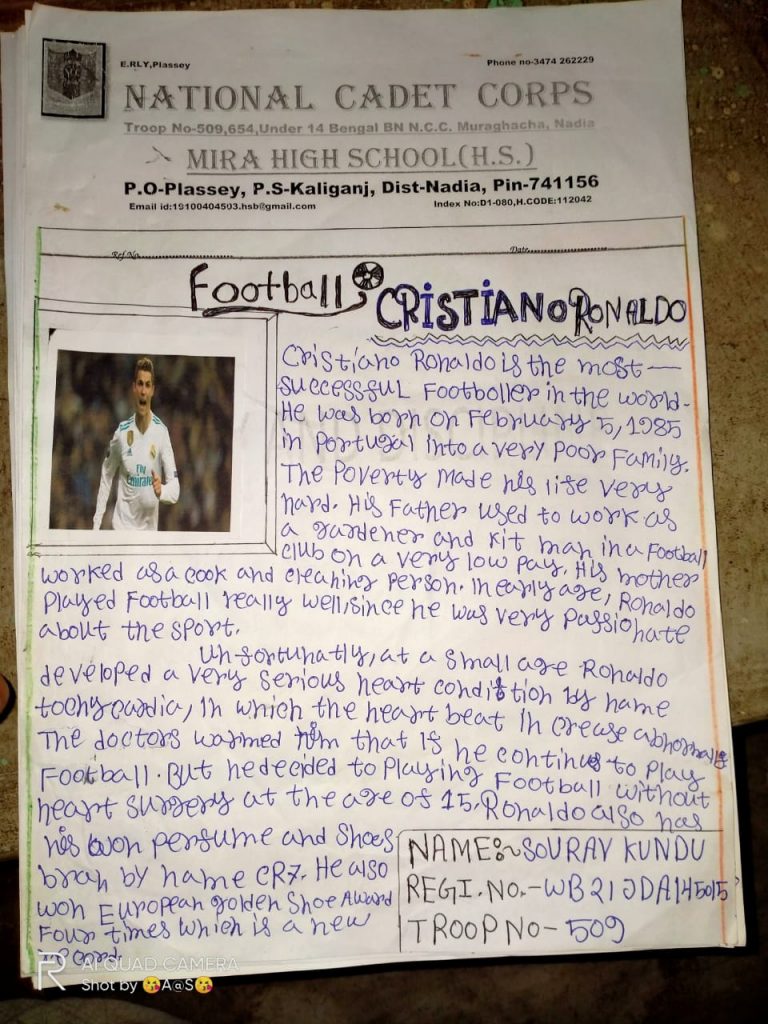 E.RLY,Plassey
Phone no-3474 262229
NATIONAL CADET CORPS
Troop No-509,654,Under 14 Bengal BN N.C.C. Muraghacha, Nadia
MIRA HIGH SCHOOL(H.S.)
P.O-Plassey, P.S-Kaliganj, Dist-Nadia, Pin-741156
Email id:19100404503.hsb@gmail.com
Index No:D1-080,H.CODE:112042
Ref No.
Date
Football
CRISTIANO RONALDO
Cristiano Ronaldo is the most
successful Footboller in the world.
He was born on February 5, 1985
in Portugal into a very poor Family.
The Poverty made his life very
hard. His Father used to work as
a gardener and kit man in a Football
club on a very low pay. His mother
worked as a cook and cleaning person. In early age, Ronaldo
played Football really well, since he was very passionate
about the sport.
Unfortunatly, at a small age Ronaldo
developed a very serious heart condition by name
tochycardia, in which the heart beat in crease abnormally
The doctors warmed him that is he continus to play
Football. But he decided to playing Football without
heart surgery at the age of 15. Ronaldo also has
his won perfume and shoes
bran by name CR7. He also
won European golden Shoe Award
Four times which is a new
record.
NAME:~SOURAV KUNDU
REGI.NO.-WB21JDA145015
TROOP NO-509
Fly
Emirates
R AFQUAD CAMERA
Shot by 😘A@S😘